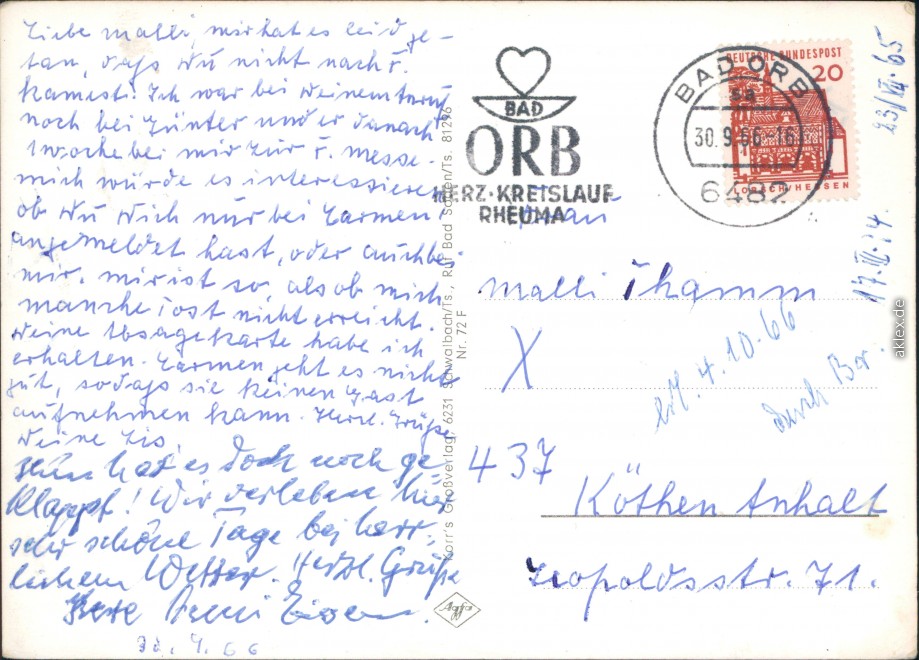 Liebe Malli, mir hat es leid ge-
tan, daß Du nicht nach
kamest. Ich war bei Deinem
noch bei Günter und er danach
1 Woche bei mir zur Messe.
Mich würde es interessieren
ob Du Dich nur bei Carmen
angemeldet hast, oder auch bei
mir. Mir ist so, als ob mich
manche Post nicht erreicht.
Deine Absagekarte habe ich
erhalten. Carmen geht es nicht
gut, sodaß sie keinen Gast
aufnehmen kann. Herzl. Grüße
Deine Lis.
Nun hat es doch noch ge
klappt! Wir verleben hier
sehr schöne Tage bei herr-
lichem Wetter. Herzl. Grüße
30.9.66
Korr's Großverlag, 6231 Schwalbach/Ts., Ruf Bad Soden/Ts. 81296
Nr. 72 F
Agfa
BAD
ORB
HERZ·KREISLAUF
RHEUMA
BAD ORB
sa
30.9.66-16
6482
DEUTSCHE BUNDESPOST
20
LORSCH/HESSEN
23/XI. 65
Frau
Malli Thamm
X
erh. 4.10.66
durch Br.
437
Köthen Anhalt
Leopoldsstr. 71.
aklex.de